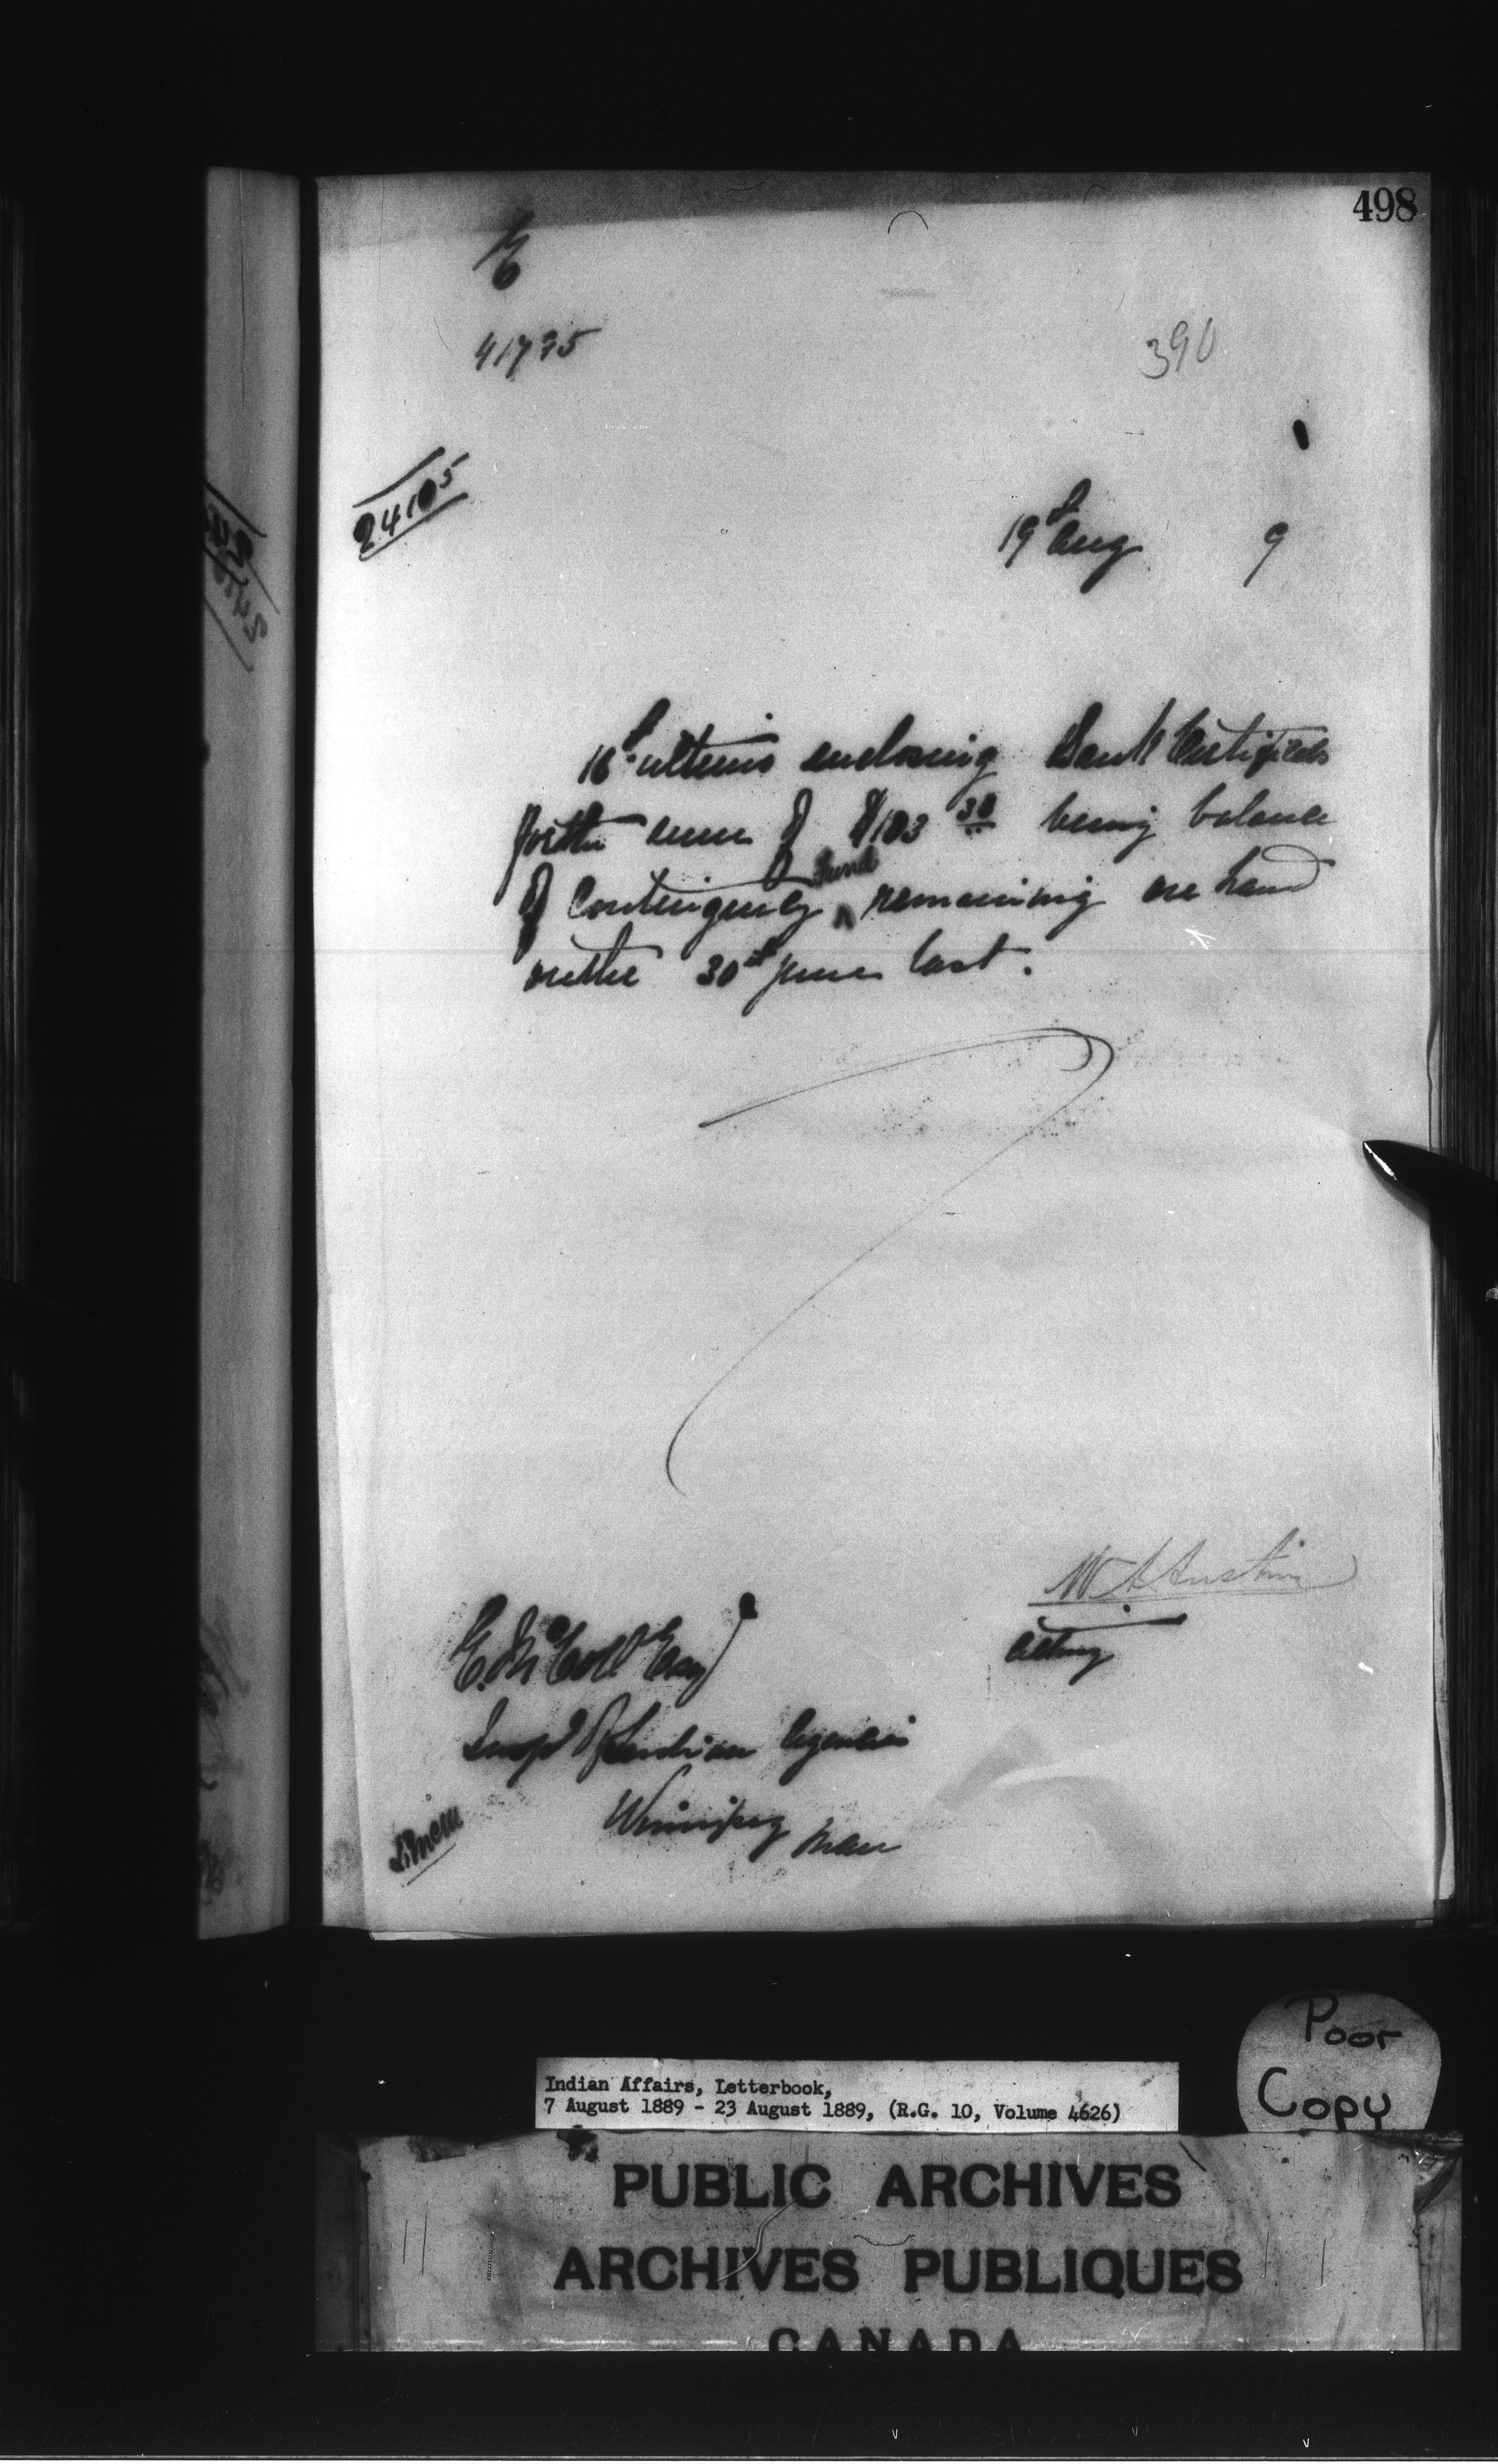 498
E
41775
390
24105
19th Aug 9
16th ultimo enclosing Bank Certificate
for the sum of $103 38 being balance
of Contingency Fund remaining on hand
on the 30th June last.
W. A. Austin
Acting
E. McColl Esq
Inspr of Indian Agencies
Winnipeg Man
Poor
Copy
Indian Affairs, Letterbook,
7 August 1889 - 23 August 1889, (R.G. 10, Volume 4626)
PUBLIC ARCHIVES
ARCHIVES PUBLIQUES
CANADA